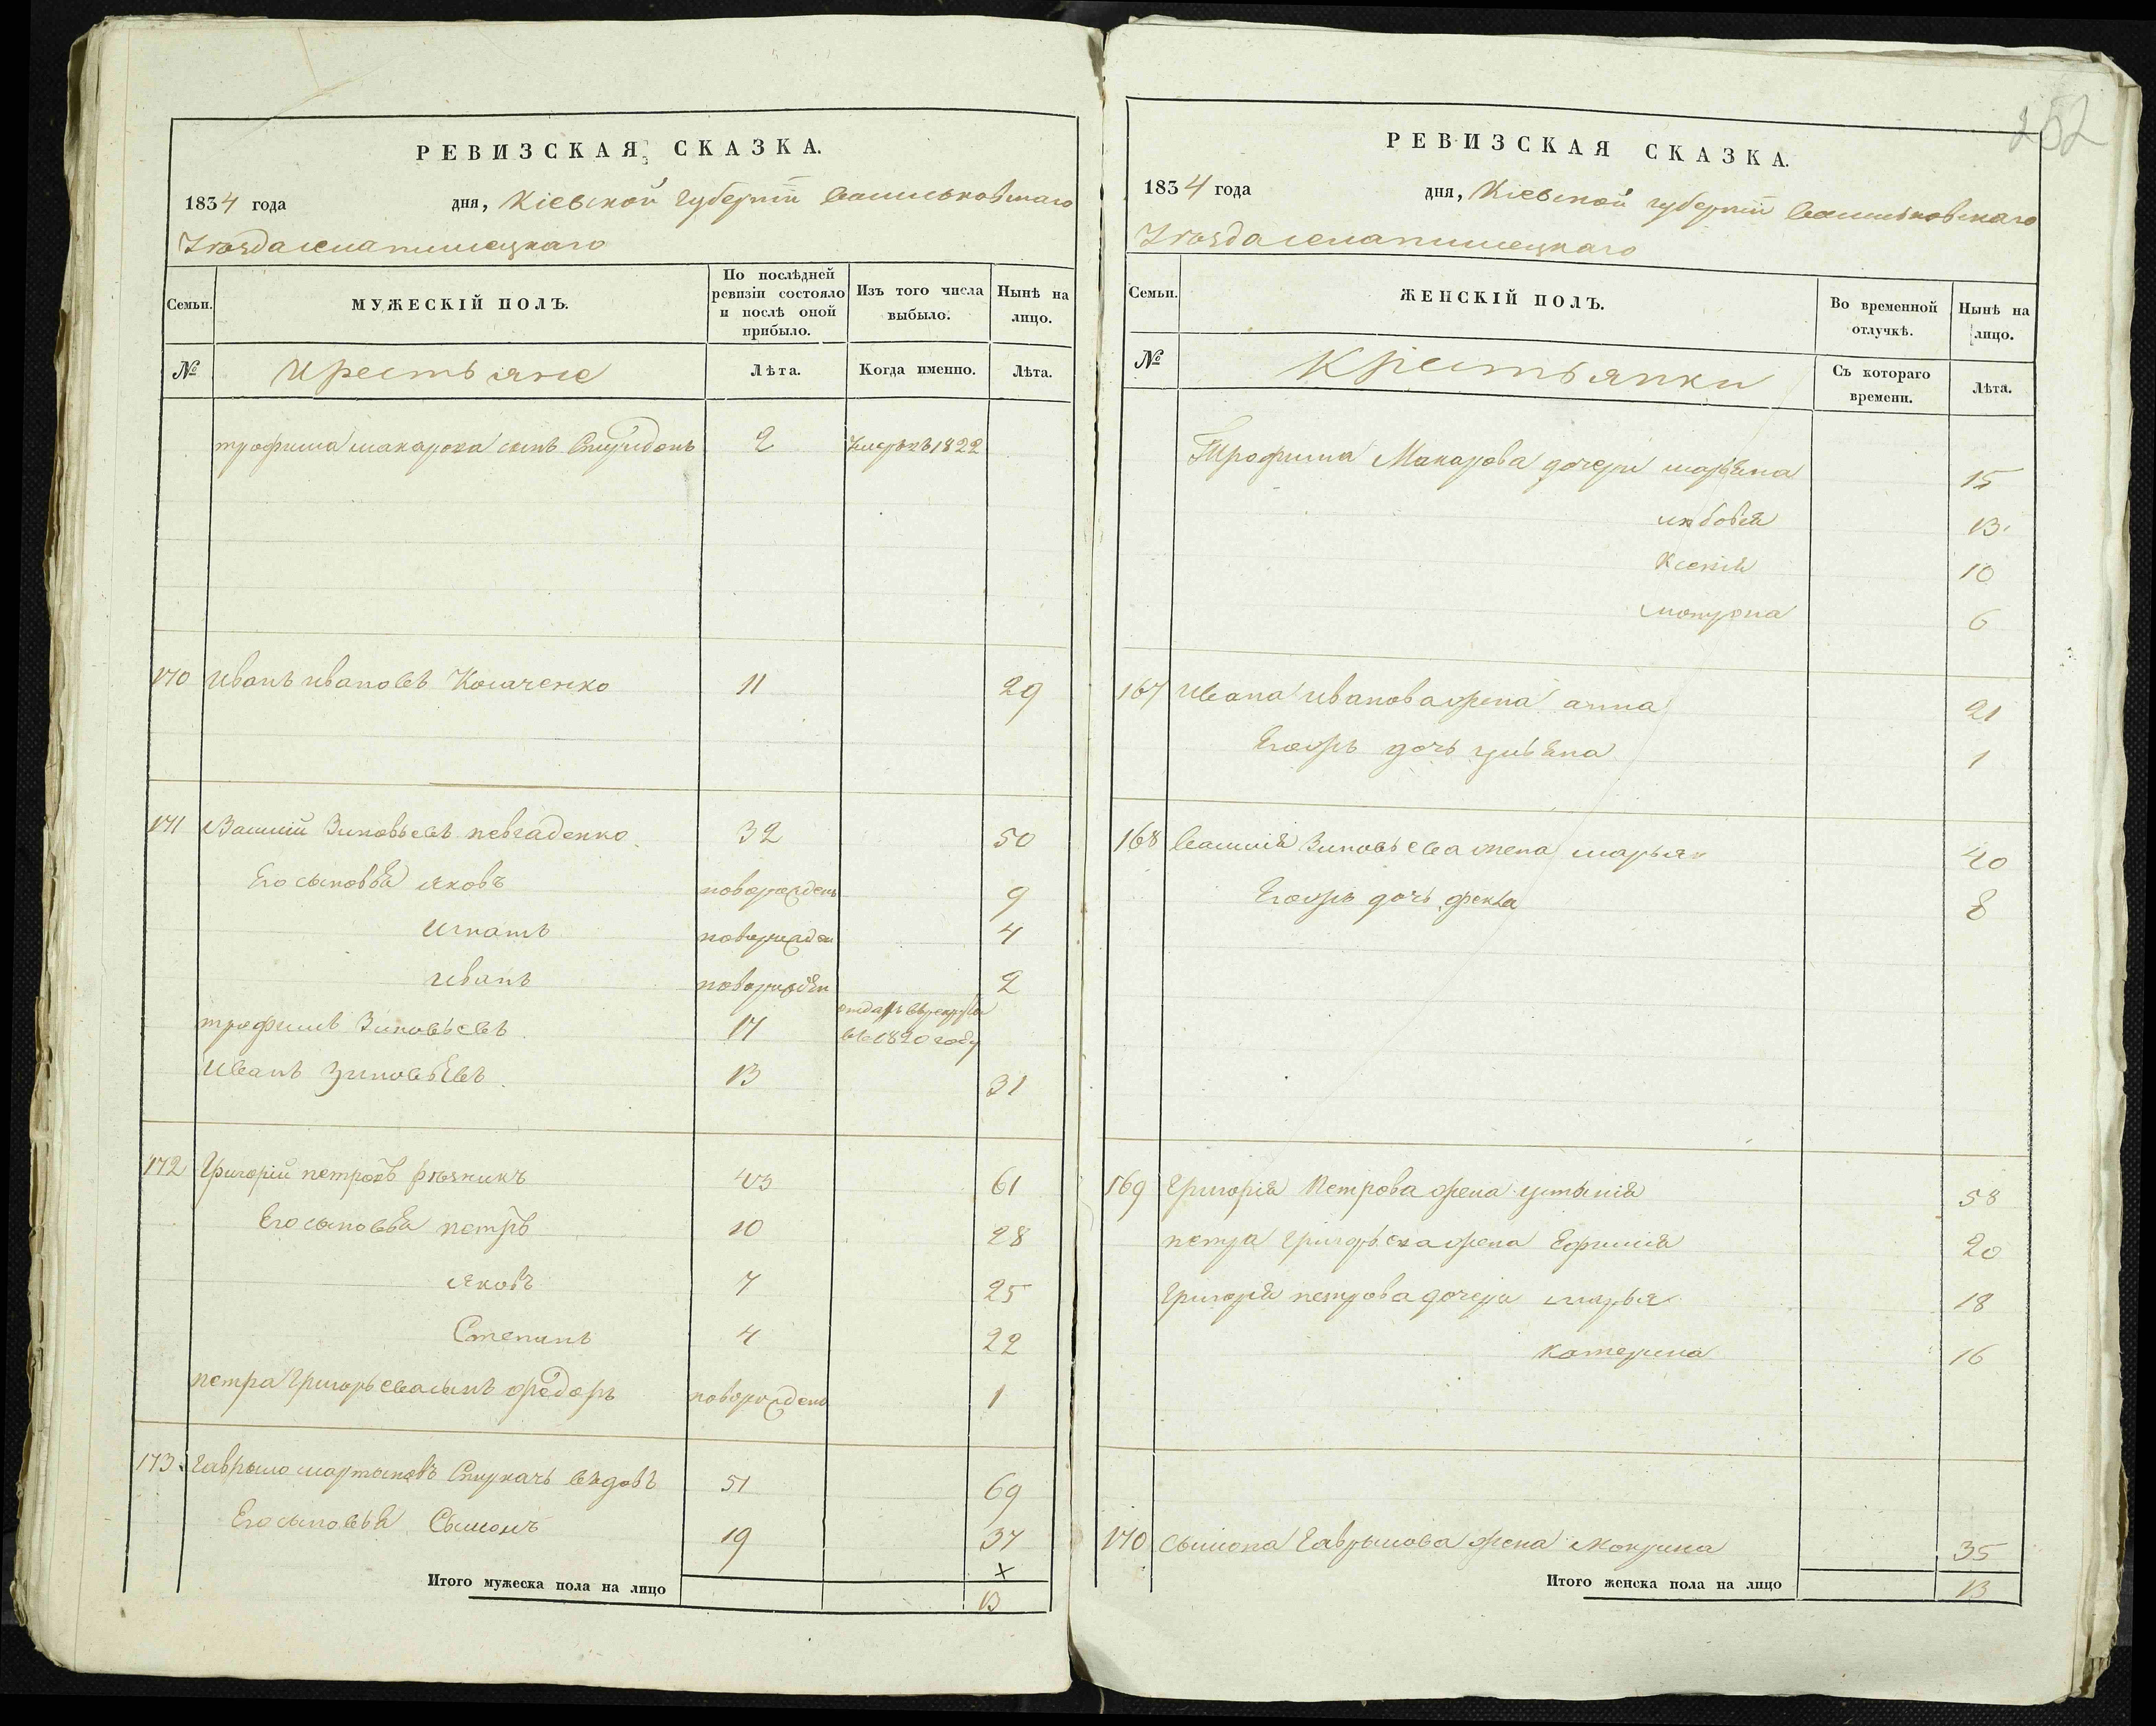 252
РЕВИЗСКАЯ СКАЗКА.
1834 года дня, Кіевской губерніи Васильковскаго
Уѣзда села пилипецкаго
Семьи. МУЖЕСКІЙ ПОЛЪ. По послѣдней ревизіи состояло и послѣ оной прибыло. Изъ того числа выбыло. Нынѣ на лицо.
№ Крестьяне Лѣта. Когда именно. Лѣта.
трофима макарова сынъ Спиридонъ 2 Умеръ въ 1822
170 Иванъ ивановъ 11 29
171 Василій Зиновьевъ 32 50
Его сыновья яковъ новорожденъ 9
игнатъ новорожден 4
иванъ новорожден 2
трофимъ Зиновьевъ 14 отданъ въ рекруты въ 1820 году
Иванъ Зиновьевъ 13 31
172 Григорій петровъ рѣзникъ 43 61
Его сыновья петръ 10 28
яковъ 7 25
Степанъ 4 22
петра Григорьева сынъ федоръ новорожденъ 1
173 Гаврыло мартыновъ вдовъ 51 69
Его сыновья Сымонъ 19 37
×
Итого мужеска пола на лицо 13
РЕВИЗСКАЯ СКАЗКА.
1834 года дня, Кіевской губерніи Васильковскаго
Уѣзда села пилипецкаго
Семьи. ЖЕНСКІЙ ПОЛЪ. Во временной отлучкѣ. Нынѣ на лицо.
№ Крестьянки Съ котораго времени. Лѣта.
Трофима Макарова дочери марьяна 15
любовія 13
Ксенія 10
мотрона 6
167 Ивана Иванова жена анна 21
Егожъ дочь ульяна 1
168 Василія Зиновьева жена марья 40
Егожъ дочь фекла 8
169 Григорія Петрова жена устынія 58
петра Григорьева жена Ефимія 20
Григорія петрова дочери марья 18
катерина 16
170 Сымона Гаврылова жена мокрина 35
Итого женска пола на лицо 13